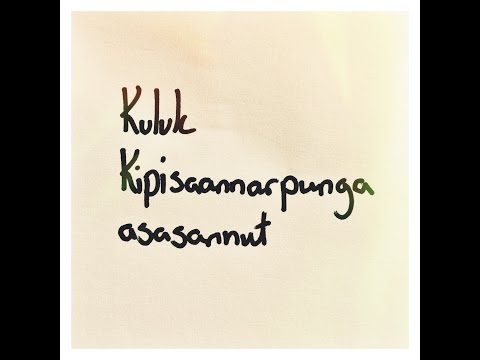 Kuluk
Kipisaannarpunga
asasannut